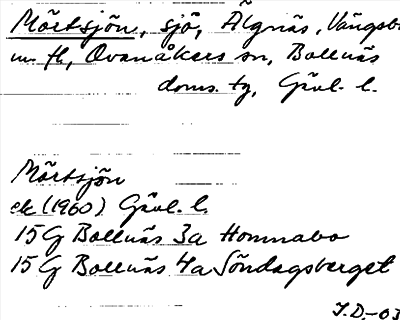 Mörtsjön, sjö, Älgnäs, Vängsb
m fl, Ovanåkers sn, Bollnäs
doms. tg, Gävl. l.
Mörtsjön
ek (1960) Gävl. l.
15G Bollnäs 3a Homnabo
15G Bollnäs 4a Söndagsberget
I.D-03